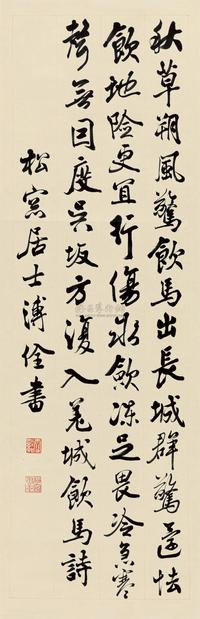 秋草朔風驚飲馬出長城群驚還怯
飲地險更宜行傷冰歛凍足畏冷急寒
聲無因度吳坂方復入羌城飲馬詩
松窗居士溥佺書